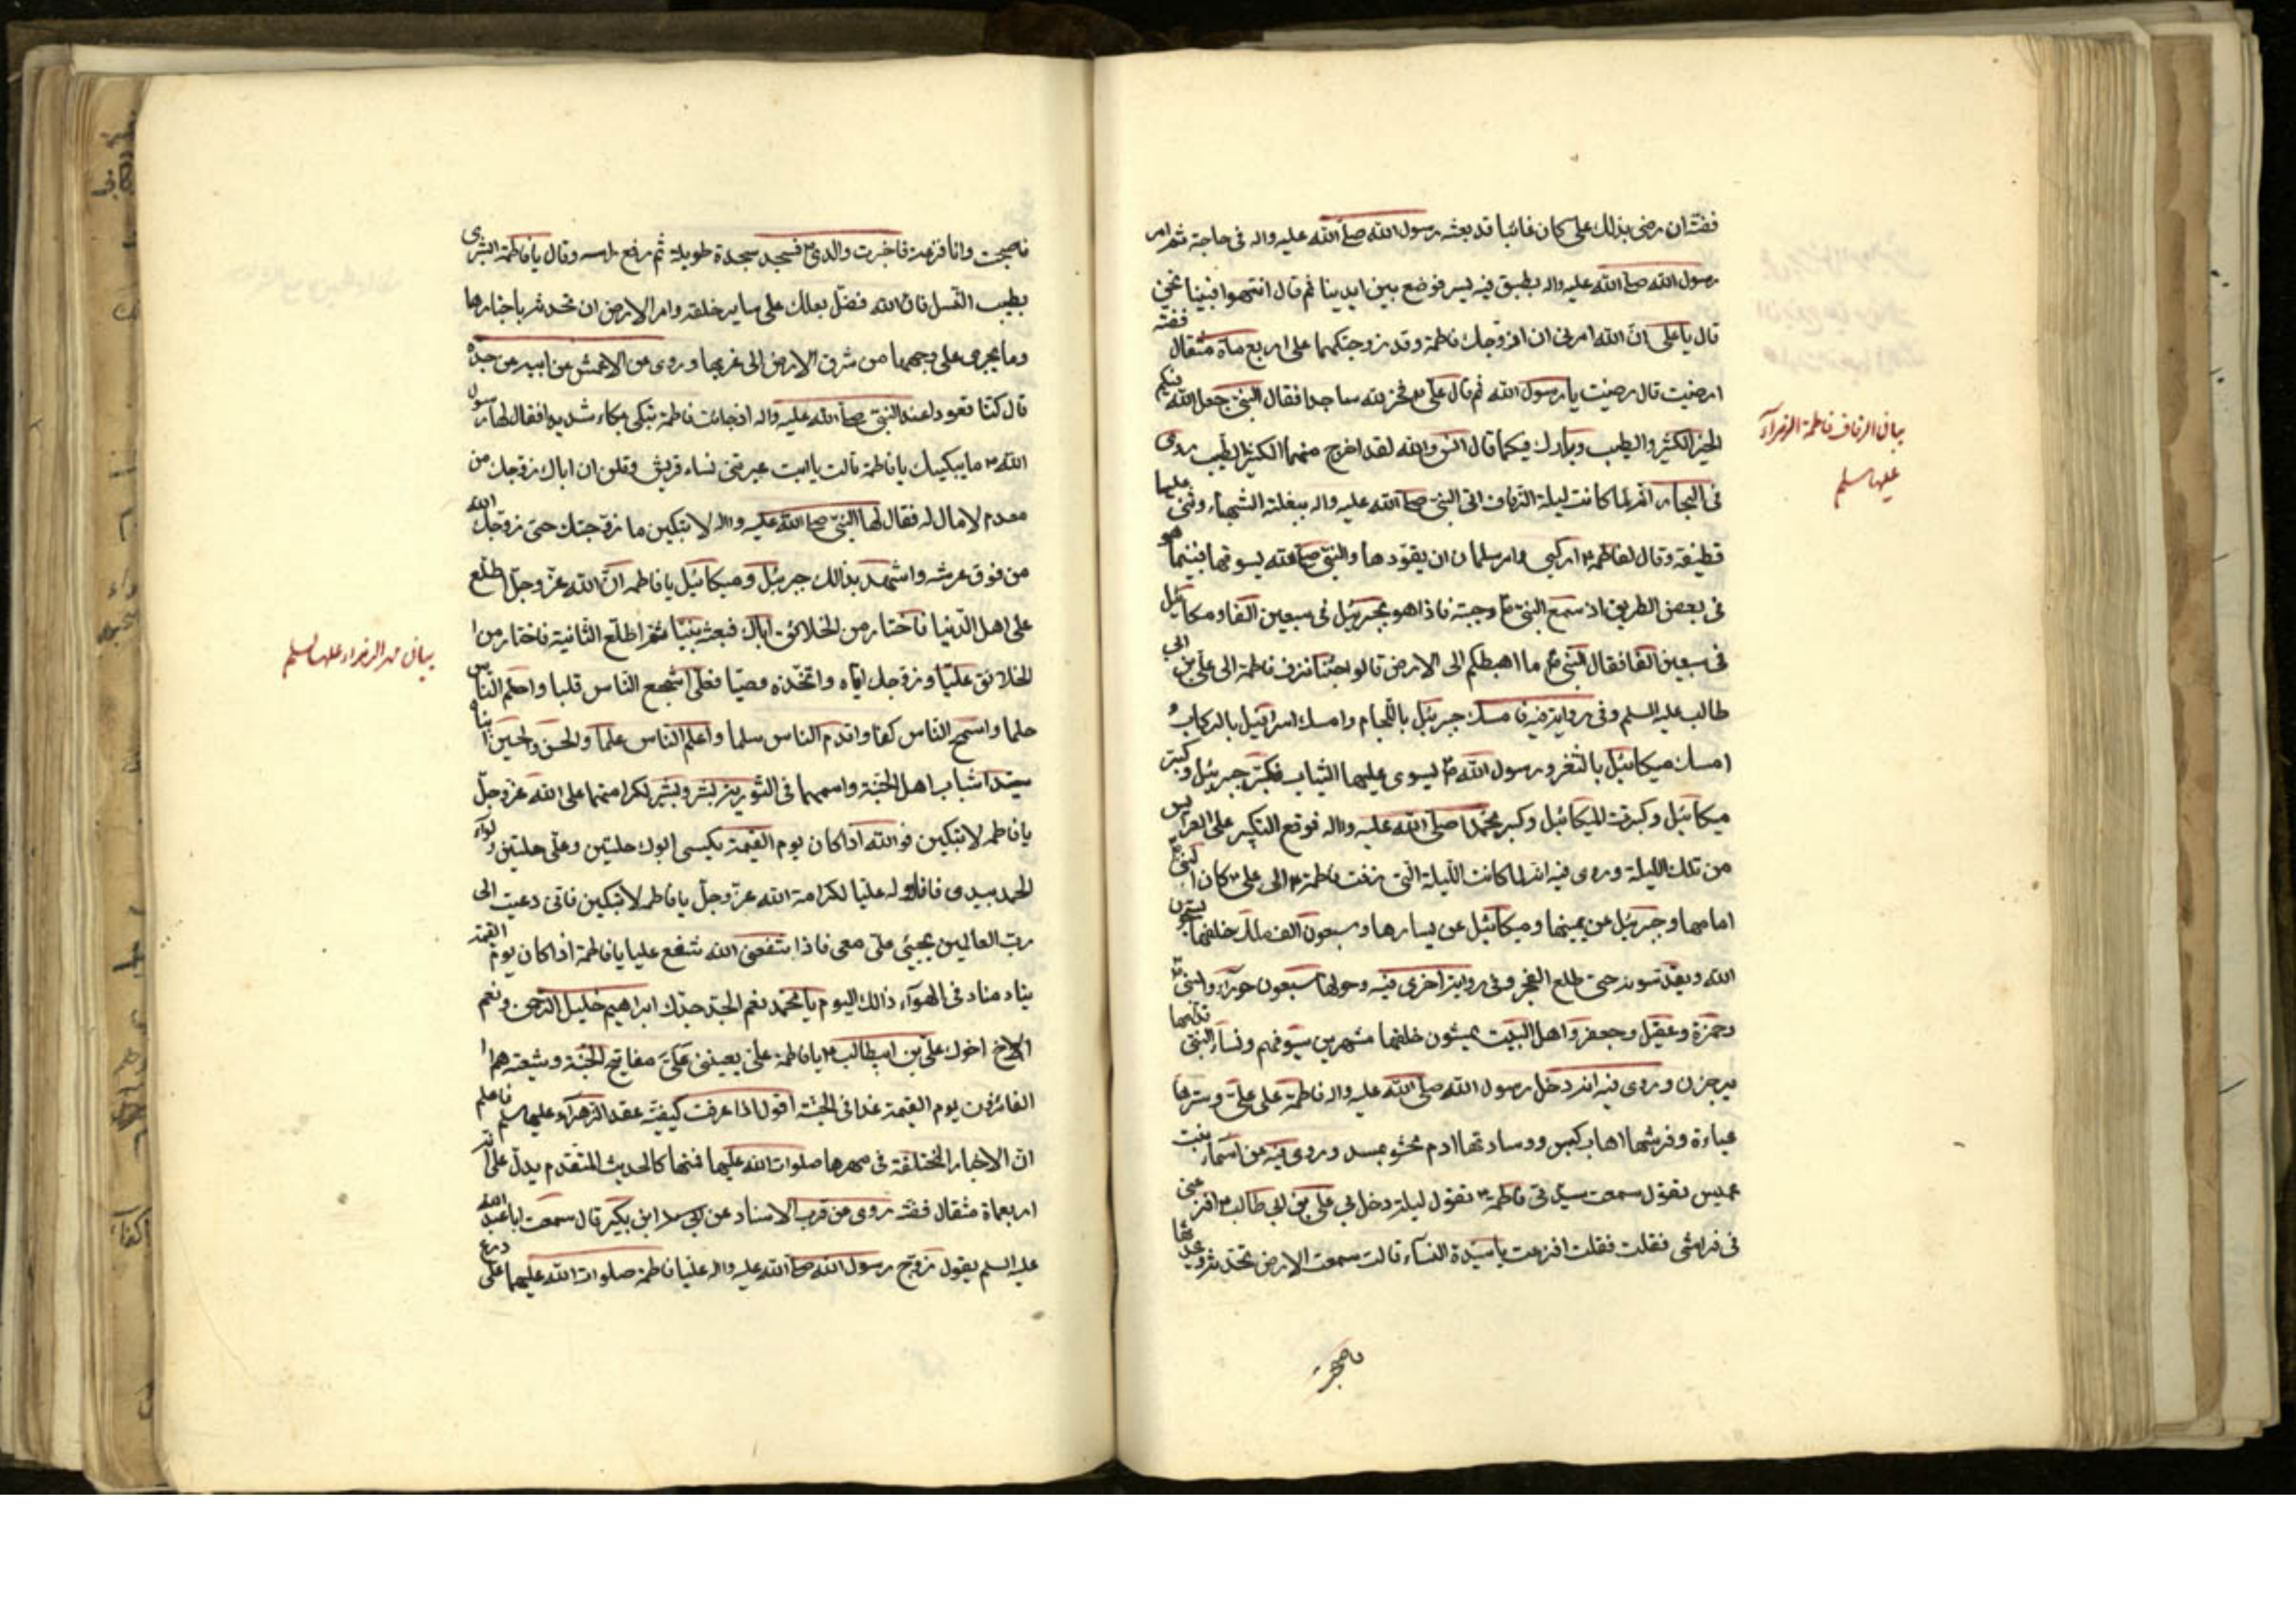 فضة ان رضى بذلك على كان غائبا قد بعثه رسول الله صلى الله عليه واله فى حاجة ثم امر
رسول الله صلى الله عليه واله بطبق فيه بسر فوضع بين ايدينا ثم قال انتهبوا فبينا نحن
قال يا على ان الله امرنى ان ازوجك فاطمة وقد زوجتكها على اربع ماة مثقال فضة
ارضيت قال رضيت يا رسول الله ثم قال على ع فخر لله ساجدا فقال النبى جعل الله فيكم
الخير الكثير والطيب وبارك فيكما قال انس والله لقد اخرج منهما الكثير الطيب روى
فى البحار انه لما كانت ليلة الزفاف اتى النبى صلى الله عليه واله ببغلته الشهباء وثنى عليها
قطيفة وقال لفاطمة ع اركبى وامر سلمان ان يقودها والنبى صلى الله يسوقها فبينما هو
فى بعض الطريق اذ سمع النبى ص وجبة فاذا هو بجبرئيل فى سبعين الفا وميكائيل
فى سبعين الفا فقال النبى ص ما اهبطكم الى الارض قالوا جئنا نزف فاطمة الى على بن ابى
طالب عليه السلم وفى رواية فيه فامسك جبرئيل باللجام وامسك اسرافيل بالركاب و
امسك ميكائيل بالثغر ورسول الله ص يسوى عليهما الثياب فكبر جبرئيل وكبر
ميكائيل وكبرت الميكائيل وكبر محمد صلى الله عليه واله فوقع التكبير على العرايس
من تلك الليلة وروى فيه انه لما كانت الليلة التى زفت فاطمة ع الى على ع كان النبى ص
امامها وجبرئيل عن يمينها وميكائيل عن يسارها وسبعون الف ملك خلفها يسبحون
الله ويقدسونه حتى طلع الفجر وفى رواية اخرى فيه وحولها سبعون حوراء والنبى ص
وحمزة وعقيل وجعفر واهل البيت يمشون خلفها مشهرين سيوفهم ونساء النبى قدامها
يرجزن وروى فيه انه دخل رسول الله صلى الله عليه واله فاطمة على على وسترها
عباءة وفرشها اهاب كبش ووسادتها ادم محشو بمسد وروى فيه عن اسماء بنت
عميس تقول سمعت سيدتى فاطمة ع تقول ليلة دخل بى على بن ابى طالب ع افزعنى
فى فراشى فقلت فقلت افزعت يا سيدة النساء قالت سمعت الارض تحدثه ويحدثها
فاصبحت
بيان الزفاف فاطمة الزهراء
عليها سلم
فاصبحت وانا فزعة فاخبرت والدى ص فسجد سجدة طويلة ثم رفع راسه وقال يا فاطمة ابشرى
بطيب النسل فان الله فضل بعلك على ساير خلقه وامر الارض ان تحدثه باخبارها
وما يجرى على وجهها من شرق الارض الى غربها وروى عن الاعمش عن ابيه عن جده
قال كنا قعودا عند النبى صلى الله عليه واله اذ جائت فاطمة تبكى بكاء شديدا فقال لها رسول
الله ص ما يبكيك يا فاطمة قالت يا ابت عيرتنى نساء قريش وقلن ان اباك زوجك من
معدم لا مال له فقال لها النبى صلى الله عليه واله لا تبكين ما زوجتك حتى زوجك الله
من فوق عرشه واشهد بذالك جبرئيل وميكائيل يا فاطمه ان الله عز وجل اطلع
على اهل الدنيا فاختار من الخلائق اباك فبعثه نبيا ثم اطلع الثانية فاختار من ا
لخلائق عليا وزوجك اياه واتخذه وصيا فعلى اشجع الناس قلبا واحلم الناس
حلما واسمح الناس كفا واقدم الناس سلما واعلم الناس علما والحسن والحسين ابناه
سيدا شباب اهل الجنة واسمهما فى التورية شبر وشبير لكرامتهما على الله عز وجل
يا فاطمه لا تبكين فوالله اذا كان يوم القيمة يكسى ابوك حلتين وعلى حلتين ولواء
الحمد بيدى فاناوله عليا لكرامة الله عز وجل يا فاطمه لا تبكين فانى دعيت الى
رب العالمين يجيئ على معى فاذا شفعنى الله شفع عليا يا فاطمة اذا كان يوم القيمة
يناد مناد فى الهواء ذالك اليوم يا محمد نعم الجد جدك ابراهيم خليل الرحمن ونعم
الاخ اخوك على بن ابيطالب ع يا فاطمة على يعيننى على مفاتيح الجنة وشيعته هم ا
لفائزون يوم القيمة غدا فى الجنة اقول اذا عرفت كيفية عقد الزهراء عليها سلم فاعلم
ان الاخبار المختلفة فى مهرها صلوات الله عليها فمنها كالحديث المتقدم يدل على انه
اربعماة مثقال فضة روى عن قرب الاسناد عن ابن بكير قال سمعت ابا عبد الله
عليه السلم يقول زوج رسول الله صلى الله عليه واله عليا فاطمة صلوات الله عليهما على درع
بيان مهر الزهراء عليها سلم